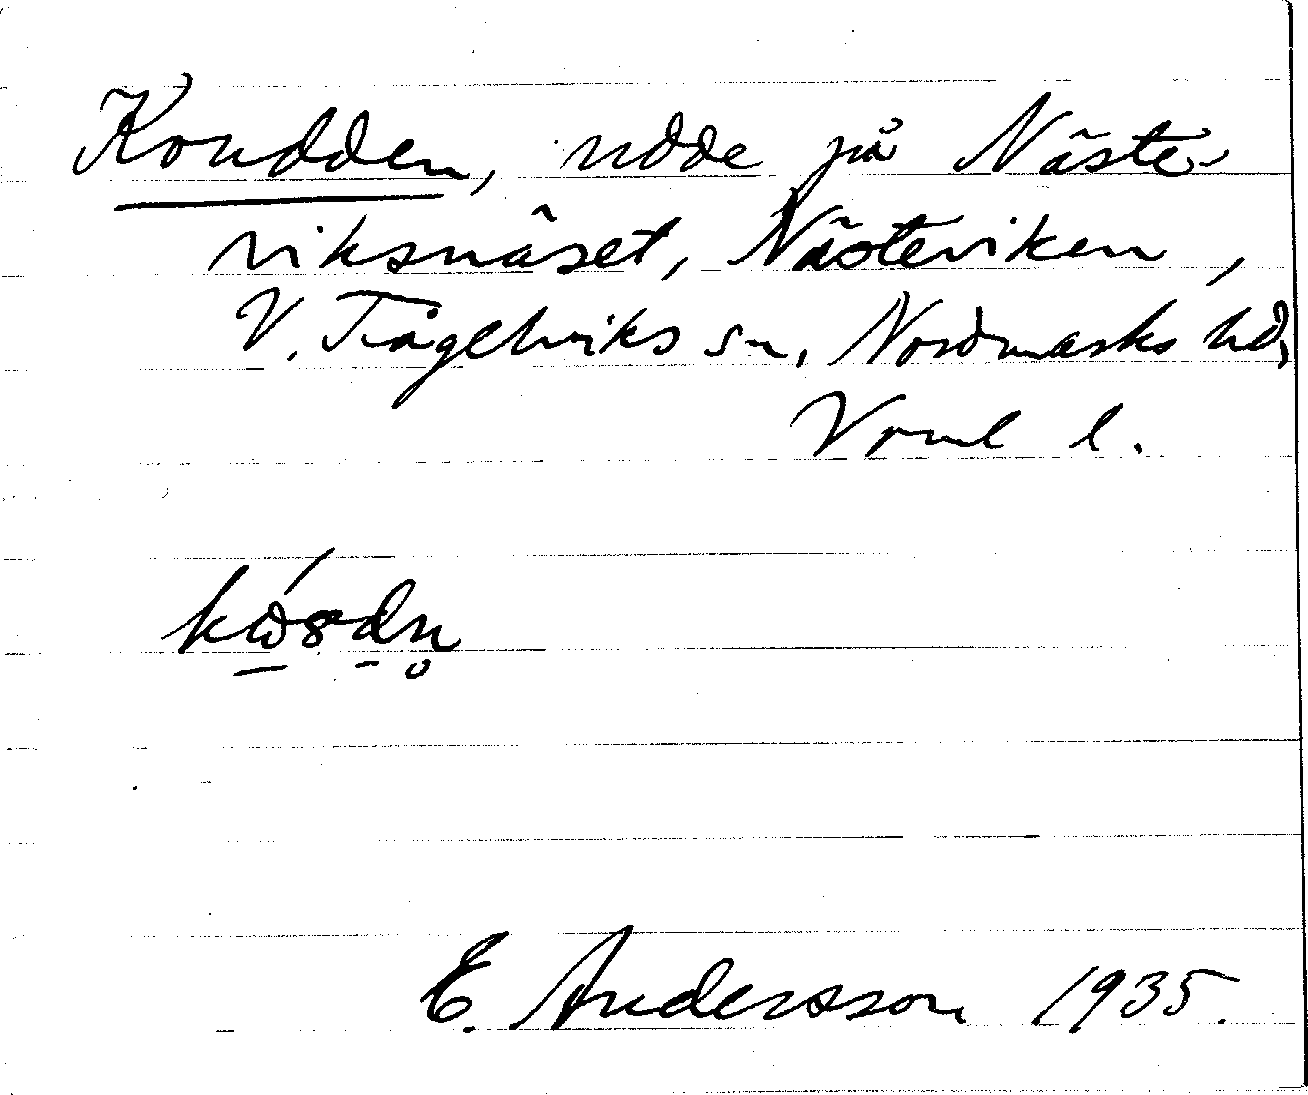 Koudden, udde på Näste-
viksnäset, Nästeviken,
V. Fågelviks sn, Nordmarks hd,
Vrml l.
E. Andersson 1935.